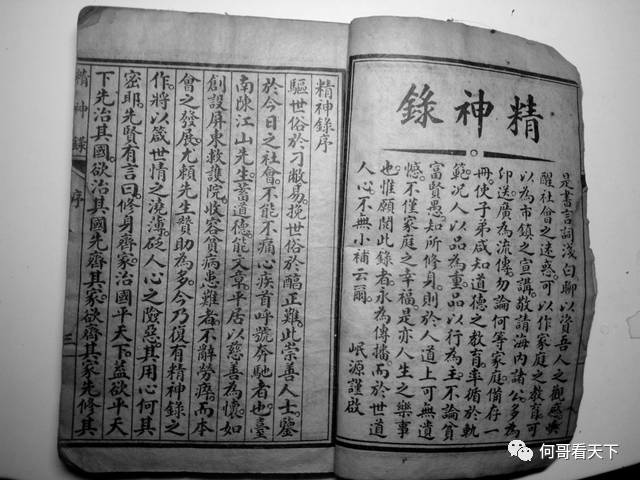 精神錄
是書言詞淺白聊以資吾人之觀感與
醒社會之迷惑可以作家庭之教育可
以為市鎮之宣講敬請海內諸公多為
印送廣為流傳勿論何等家庭備存一
冊使子弟咸知道德之教育率循於軌
範況人以品為重品以行為主不論貧
富賢愚知所修身則於人道上可無遺
憾不僅家庭之幸福是亦人生之樂事
也惟願閱此錄者永為傳播而於世道
人心不無小補云爾
岷源謹啟
精神錄序
驅世俗於刁敝易挽世俗於醕正難此崇善人士鑒
於今日之社會不能不痛心疾首呼號奔馳者也臺
南陳江山先生蓄道德能文章平居以慈善為懷如
創設屏東救護院收容貧病患難者不辭勞瘁而本
會之發展尤賴先生贊助為多今乃復有精神錄之
作將以箴世情之澆薄砭人心之險惡其用心何其
密耶先賢有言曰修身齊家治國平天下蓋欲平天
下先治其國欲治其國先齊其家欲齊其家先修其
精神錄
序
三
何哥看天下